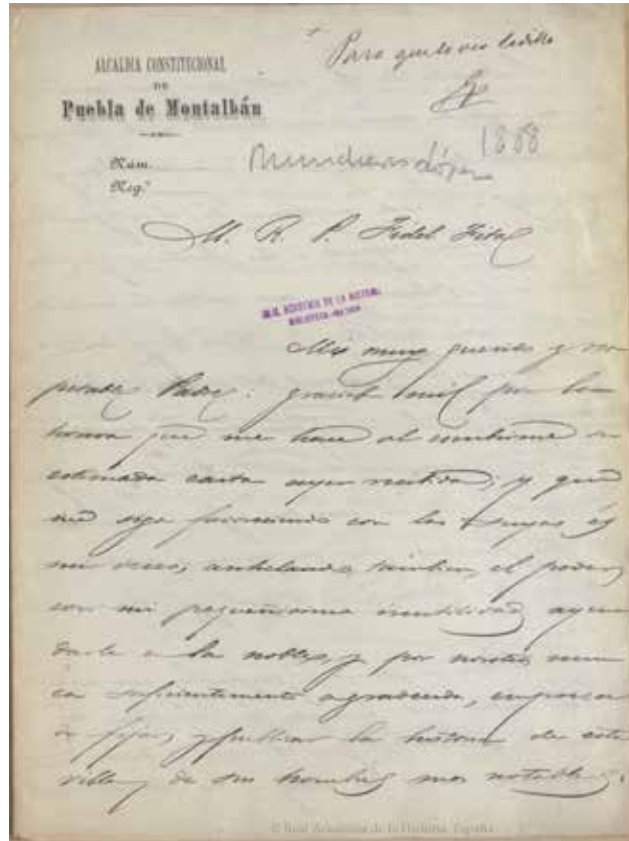 Para que lo vea Cedillo
ALCALDIA CONSTITUCIONAL
DE
Puebla de Montalbán
Núm.
Neg.º
1888
M. R. P. Fidel Fita
R. ACADEMIA DE LA HISTORIA
BIBLIOTECA
Mi muy querido y res
petado Padre: gracias mil por la
honra que me hace al escribirme su
estimada carta ayer recibida; y que
me siga favoreciendo con las suyas es
mi deseo, anhelando tambien, el poder,
con mi pequeñisima inutilidad, ayu
darle a la noble, y por nosotros nun
ca suficientemente agradecida, empresa
de fijar, y publicar la historia de esta
villa y de sus hombres mas notables.
© Real Academia de la Historia. España